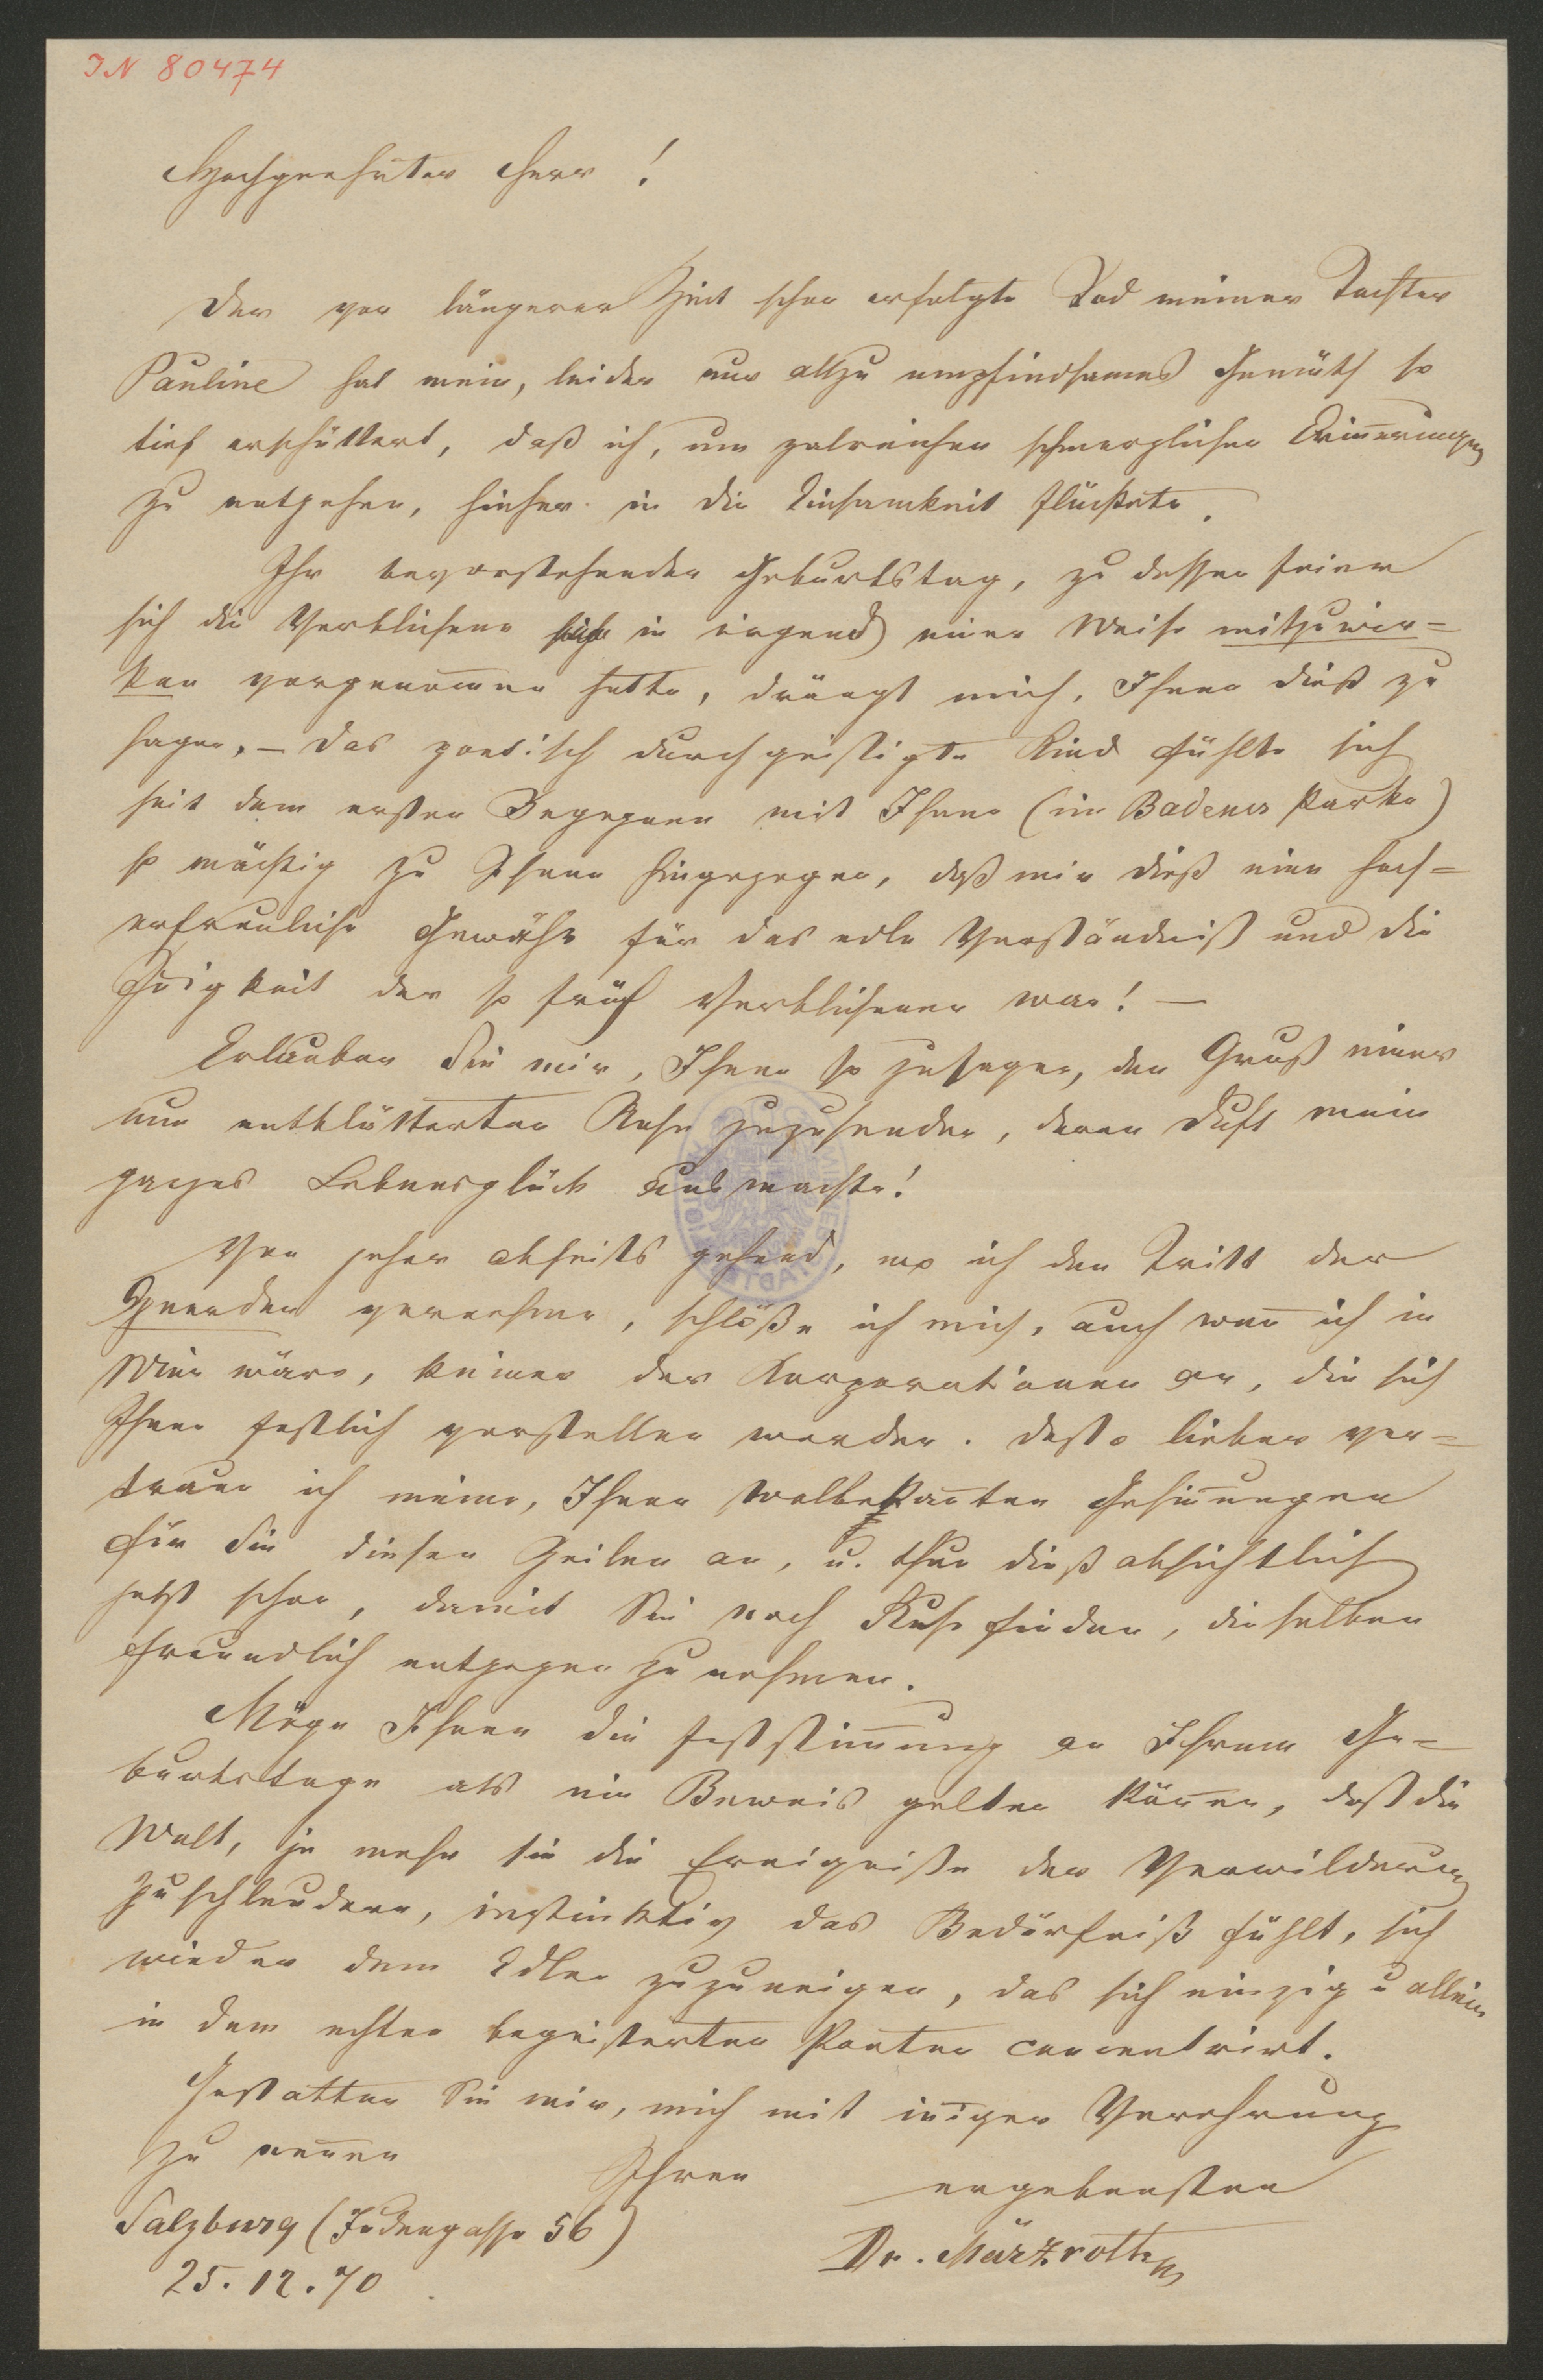 IN 80474
Hochgeehrter Herr!
Der vor längerer Zeit schon erfolgte Tod meiner Tochter
Pauline hat mein, leider nur allzu empfindsames Gemüth so
tief erschüttert, daß ich, um zalreichen schmerzlichen Erin̄erungen
zu entgehen, hieher in die Einsamkeit flüchtete.
Ihr bevorstehender Geburtstag, zu dessen Feier
sich die Verblichene in irgend einer Weise mitzuwir=
ken vorgenom̄en hatte, drängt mich, Ihnen dieß zu
sagen, – das poetisch durchgeistigte Kind fühlte sich
seit dem ersten Begegnen mit Ihnen (im Badener Parke)
so mächtig zu Ihnen hingezogen, daß mir dieß eine hoch=
erfreuliche Gewähr für das edle Verständniß und die
In̄igkeit der so früh Verblichenen war! –
Erlauben Sie mir, Ihnen so zusagen, den Gruß einer
nun entblätterten Rose zuzusenden, deren Duft mein
ganzes Lebensglück ausmachte!
Von jeher abseits gehend, wo ich den Tritt der
Heerden vernehme, schlöße ich mich, auch wen̄ ich in
Wien wäre, keiner der Korporationen an, die sich
Ihnen festlich vorstellen werden. Desto lieber ver=
traue ich meine, Ihnen wolbekan̄ten Gesin̄ungen
für Sie diesen Zeilen an, u. thue dieß absichtlich
jetzt schon, damit Sie noch Ruhe finden, dieselben
freundlich entgegen zu nehmen.
Möge Ihnen die Feststim̄ung an Ihrem Ge=
burtstage als ein Beweis gelten kön̄en, daß die
Welt, je mehr sie die Ereigniße der Verwilderung
zuschleudern, instinktiv das Bedürfniß fühlt, sich
wieder dem Edlen zuzuneigen, das sich einzig u allein
in dem echten begeisterten Poeten concentrirt.
Gestatten Sie mir, mich mit in̄iger Verehrung
zu nen̄en
Ihren ergebensten
Salzburg (Judengasse 56)
Dr. Märzroth
25.12.70